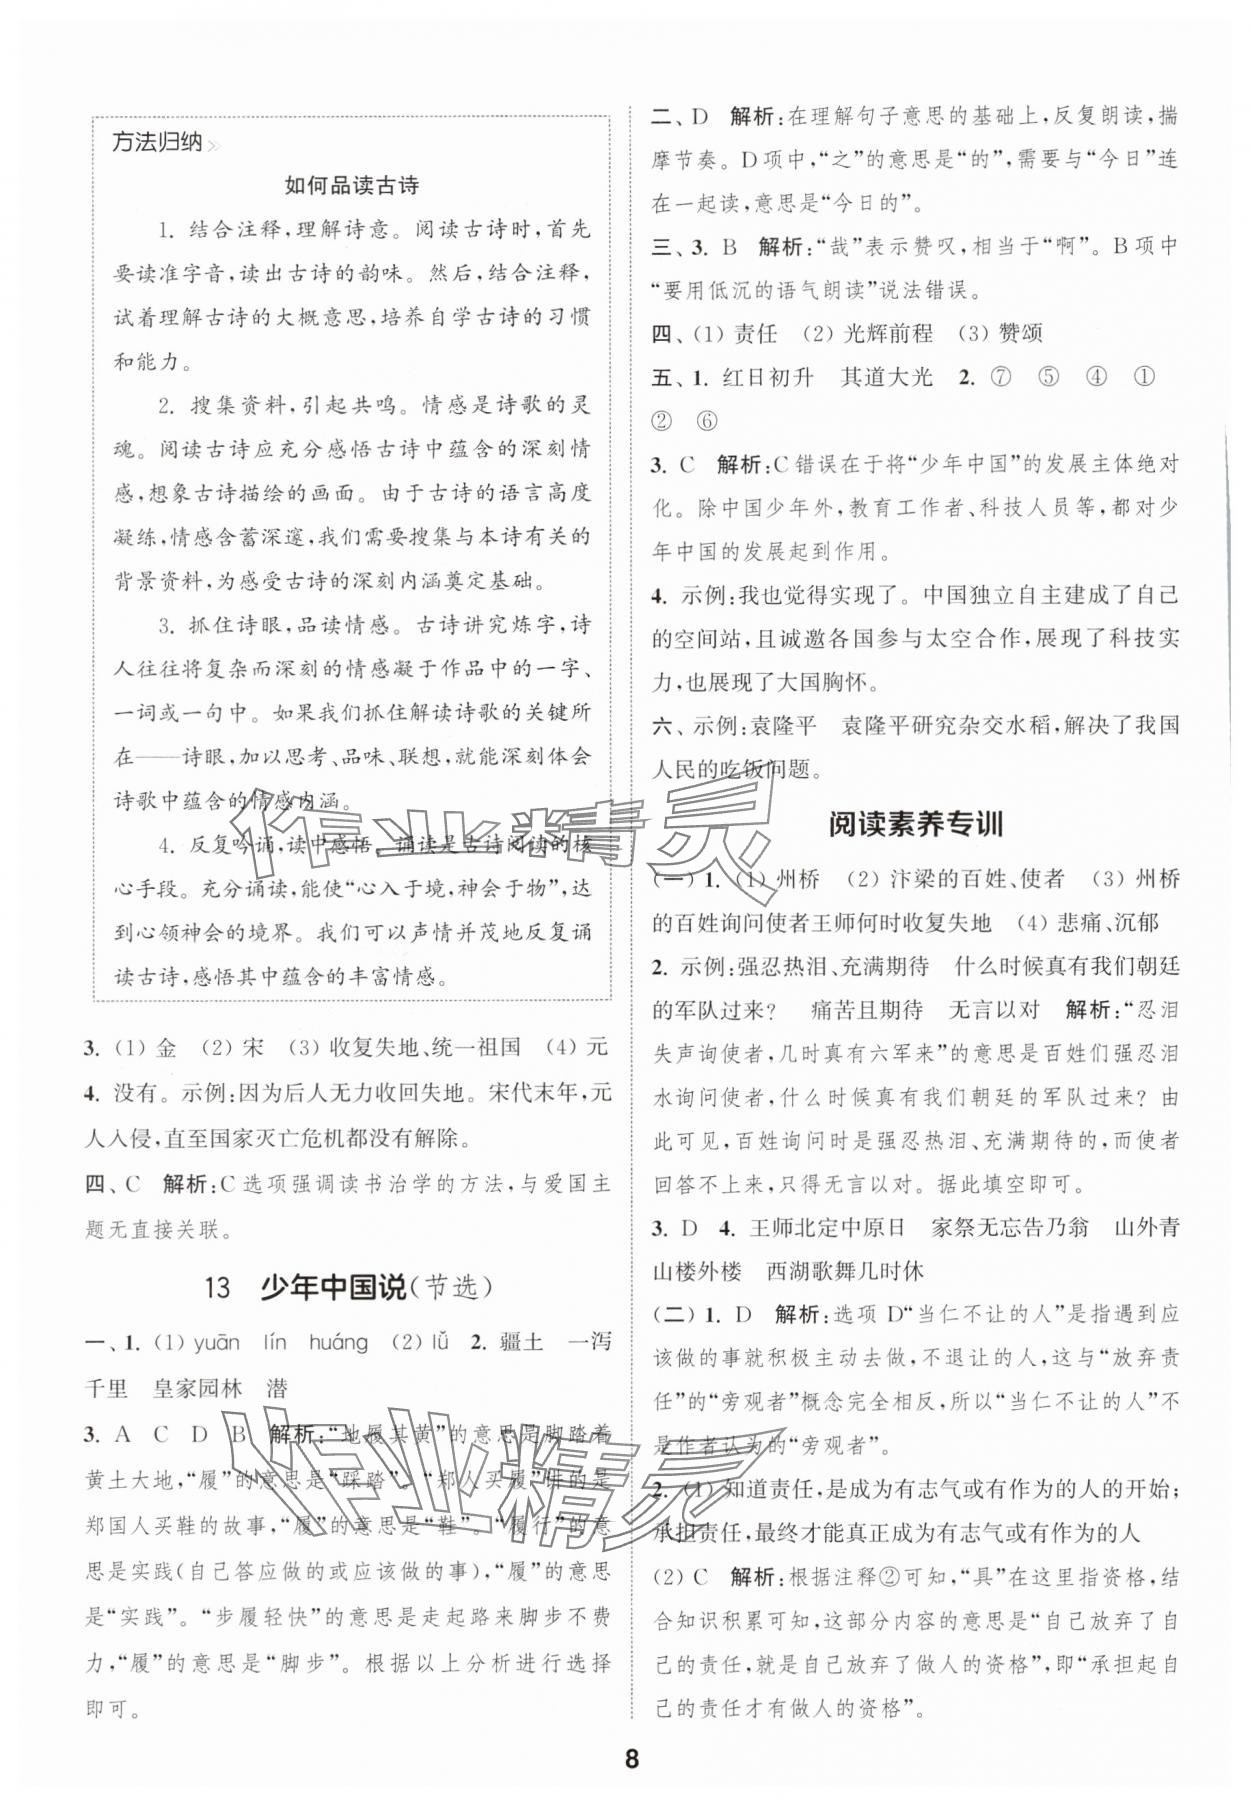 方法归纳
如何品读古诗
1. 结合注释,理解诗意。阅读古诗时,首先
要读准字音,读出古诗的韵味。然后,结合注释,
试着理解古诗的大概意思,培养自学古诗的习惯
和能力。
2. 搜集资料,引起共鸣。情感是诗歌的灵
魂。阅读古诗应充分感悟古诗中蕴含的深刻情
感,想象古诗描绘的画面。由于古诗的语言高度
凝练,情感含蓄深邃,我们需要搜集与本诗有关的
背景资料,为感受古诗的深刻内涵奠定基础。
3. 抓住诗眼,品读情感。古诗讲究炼字,诗
人往往将复杂而深刻的情感凝于作品中的一字、
一词或一句中。如果我们抓住解读诗歌的关键所
在——诗眼,加以思考、品味、联想,就能深刻体会
诗歌中蕴含的情感内涵。
4. 反复吟诵,读中感悟。诵读是古诗阅读的核
心手段。充分诵读,能使“心入于境,神会于物”,达
到心领神会的境界。我们可以声情并茂地反复诵
读古诗,感悟其中蕴含的丰富情感。
3. (1) 金 (2) 宋 (3) 收复失地、统一祖国 (4) 元
4. 没有。示例:因为后人无力收回失地。宋代末年,元
人入侵,直至国家灭亡危机都没有解除。
四、C 解析:C选项强调读书治学的方法,与爱国主
题无直接关联。
13 少年中国说(节选)
一、1. (1) yuān lín huáng (2) lǚ 2. 疆土 一泻
千里 皇家园林 潜
3. A C D B 解析:“地履其黄”的意思是脚踏着
黄土大地,“履”的意思是“踩踏”。“郑人买履”讲的是
郑国人买鞋的故事,“履”的意思是“鞋”。“履行”的意
思是实践(自己答应做的或应该做的事),“履”的意思
是“实践”。“步履轻快”的意思是走起路来脚步不费
力,“履”的意思是“脚步”。根据以上分析进行选择
即可。
二、D 解析:在理解句子意思的基础上,反复朗读,揣
摩节奏。D项中,“之”的意思是“的”,需要与“今日”连
在一起读,意思是“今日的”。
三、3. B 解析:“哉”表示赞叹,相当于“啊”。B项中
“要用低沉的语气朗读”说法错误。
四、(1) 责任 (2) 光辉前程 (3) 赞颂
五、1. 红日初升 其道大光 2. ⑦ ⑤ ④ ①
② ⑥
3. C 解析:C错误在于将“少年中国”的发展主体绝对
化。除中国少年外,教育工作者、科技人员等,都对少
年中国的发展起到作用。
4. 示例:我也觉得实现了。中国独立自主建成了自己
的空间站,且诚邀各国参与太空合作,展现了科技实
力,也展现了大国胸怀。
六、示例:袁隆平 袁隆平研究杂交水稻,解决了我国
人民的吃饭问题。
阅读素养专训
(一) 1. (1) 州桥 (2) 汴梁的百姓、使者 (3) 州桥
的百姓询问使者王师何时收复失地 (4) 悲痛、沉郁
2. 示例:强忍热泪、充满期待 什么时候真有我们朝廷
的军队过来? 痛苦且期待 无言以对 解析:“忍泪
失声询使者,几时真有六军来”的意思是百姓们强忍泪
水询问使者,什么时候真有我们朝廷的军队过来?由
此可见,百姓询问时是强忍热泪、充满期待的,而使者
回答不上来,只得无言以对。据此填空即可。
3. D 4. 王师北定中原日 家祭无忘告乃翁 山外青
山楼外楼 西湖歌舞几时休
(二) 1. D 解析:选项D“当仁不让的人”是指遇到应
该做的事就积极主动去做,不退让的人,这与“放弃责
任”的“旁观者”概念完全相反,所以“当仁不让的人”不
是作者认为的“旁观者”。
2. (1) 知道责任,是成为有志气或有作为的人的开始;
承担责任,最终才能真正成为有志气或有作为的人
(2) C 解析:根据注释②可知,“具”在这里指资格,结
合知识积累可知,这部分内容的意思是“自己放弃了自
己的责任,就是自己放弃了做人的资格”,即“承担起自
己的责任才有做人的资格”。
8
作业精灵
作业精灵